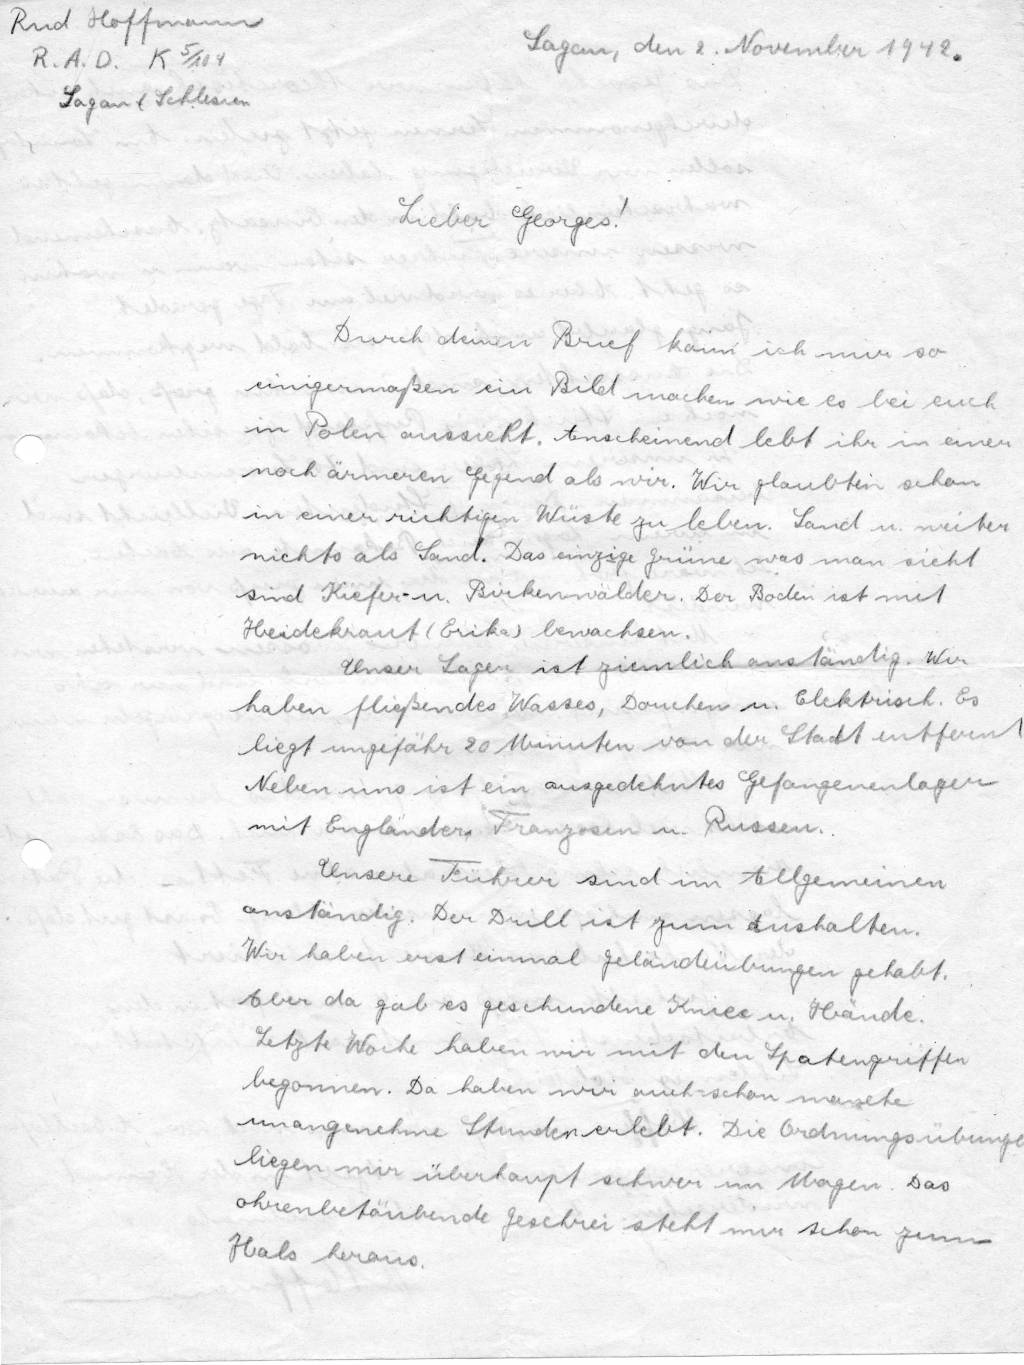 Rud Hoffmann
R.A.D. K 5/104
Sagan / Schlesien
Sagan, den 2. November 1942.
Lieber Georges!
Durch deinen Brief kann ich mir so
einigermaßen ein Bild machen wie es bei euch
in Polen aussieht. Anscheinend lebt ihr in einer
noch ärmeren Gegend als wir. Wir glaubten schon
in einer richtigen Wüste zu leben. Sand u. weiter
nichts als Sand. Das einzige Grüne was man sieht
sind Kiefer- u. Birkenwälder. Der Boden ist mit
Heidekraut (Erika) bewachsen.
Unser Lager ist ziemlich anständig. Wir
haben fließendes Wasses, Douchen u. Elektrisch. Es
liegt ungefähr 20 Minuten von der Stadt entfernt
Neben uns ist ein ausgedehntes Gefangenenlager
mit Engländer, Franzosen u. Russen.
Unsere Führer sind im Allgemeinen
anständig. Der Drill ist zum Aushalten.
Wir haben erst einmal Geländeübungen gehabt.
Aber da gab es geschundene Kniee u. Hände.
Letzte Woche haben wir mit den Spatengriffen
begonnen. Da haben wir auch schon manche
unangenehme Stunden erlebt. Die Ordnungsübunge
liegen mir überhaupt schwer im Magen. Das
ohrenbetäubende Geschrei steht mir schon zum
Hals heraus.